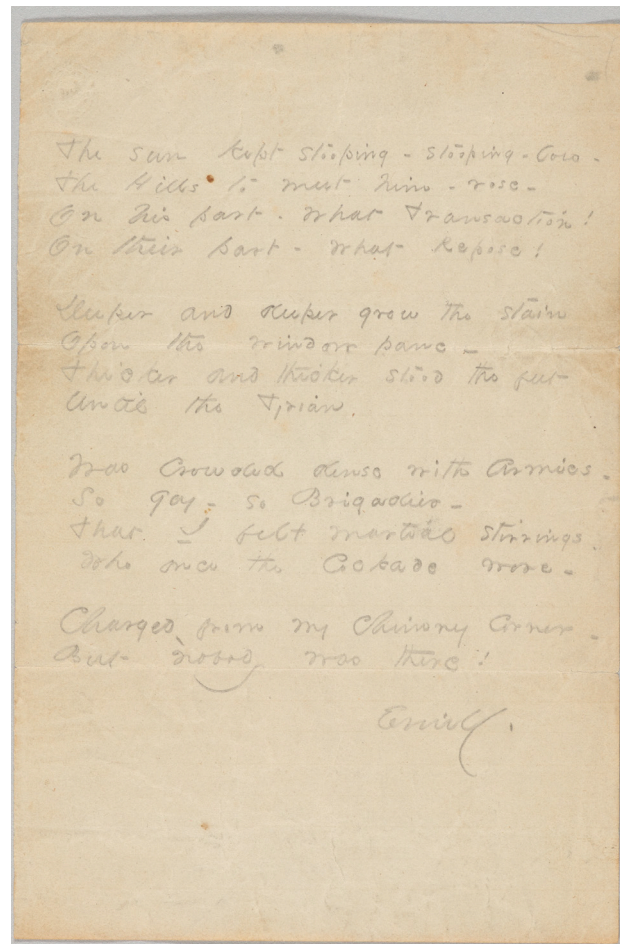 The Sun kept stooping - stooping - low -
The Hills to meet him - rose -
On his part - what Transaction!
On their part - what Repose!
Deeper and deeper grew the stain
Upon the window pane -
Thicker and thicker stood the feet
Until the Tyrian.
Was crowded dense with Armies -
So gay - so Brigadier -
That I felt martial stirrings
Who once the Cockade wore -
Charged from my Chimney Corner -
But nobody was there!
Emily.